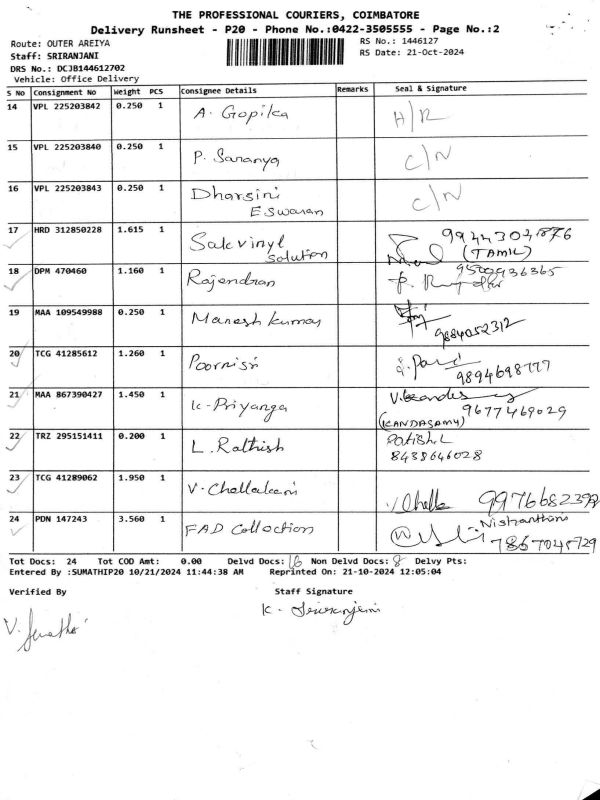 THE PROFESSIONAL COURIERS, COIMBATORE
Delivery Runsheet - P20 - Phone No.:0422-3505555 - Page No.:2
Route: OUTER AREIYA RS No.: 1446127
Staff: SRIRANJANI RS Date: 21-Oct-2024
DRS No.: DCJB144612702
Vehicle: Office Delivery
S No Consignment No Weight PCS Consignee Details Remarks Seal & Signature
14 VPL 225203842 0.250 1 A. Gopika H/R
15 VPL 225203840 0.250 1 P. Saranya C/N
16 VPL 225203843 0.250 1 Dharsini C/N
Eswaran
17 HRD 312850228 1.615 1 Sakvinyl
solution (TAMIL)
18 DPM 470460 1.160 1 Rajendran 9500936365
19 MAA 109549988 0.250 1 Manesh kumar
9884052312
20 TCG 41285612 1.260 1 Poornisri
9894698777
21 MAA 867390427 1.450 1 K-Priyanga
(KANDASAMY) 9677469029
22 TRZ 295151411 0.200 1 L. Rathish Ratish.L
8438646028
23 TCG 41289062 1.950 1 V. Challakani
24 PDN 147243 3.560 1 FAD Collection Nishanthini
Tot Docs: 24 Tot COD Amt: 0.00 Delvd Docs: 16 Non Delvd Docs: 8 Delvy Pts:
Entered By :SUMATHIP20 10/21/2024 11:44:38 AM Reprinted On: 21-10-2024 12:05:04
Verified By Staff Signature
K. Sriranjani